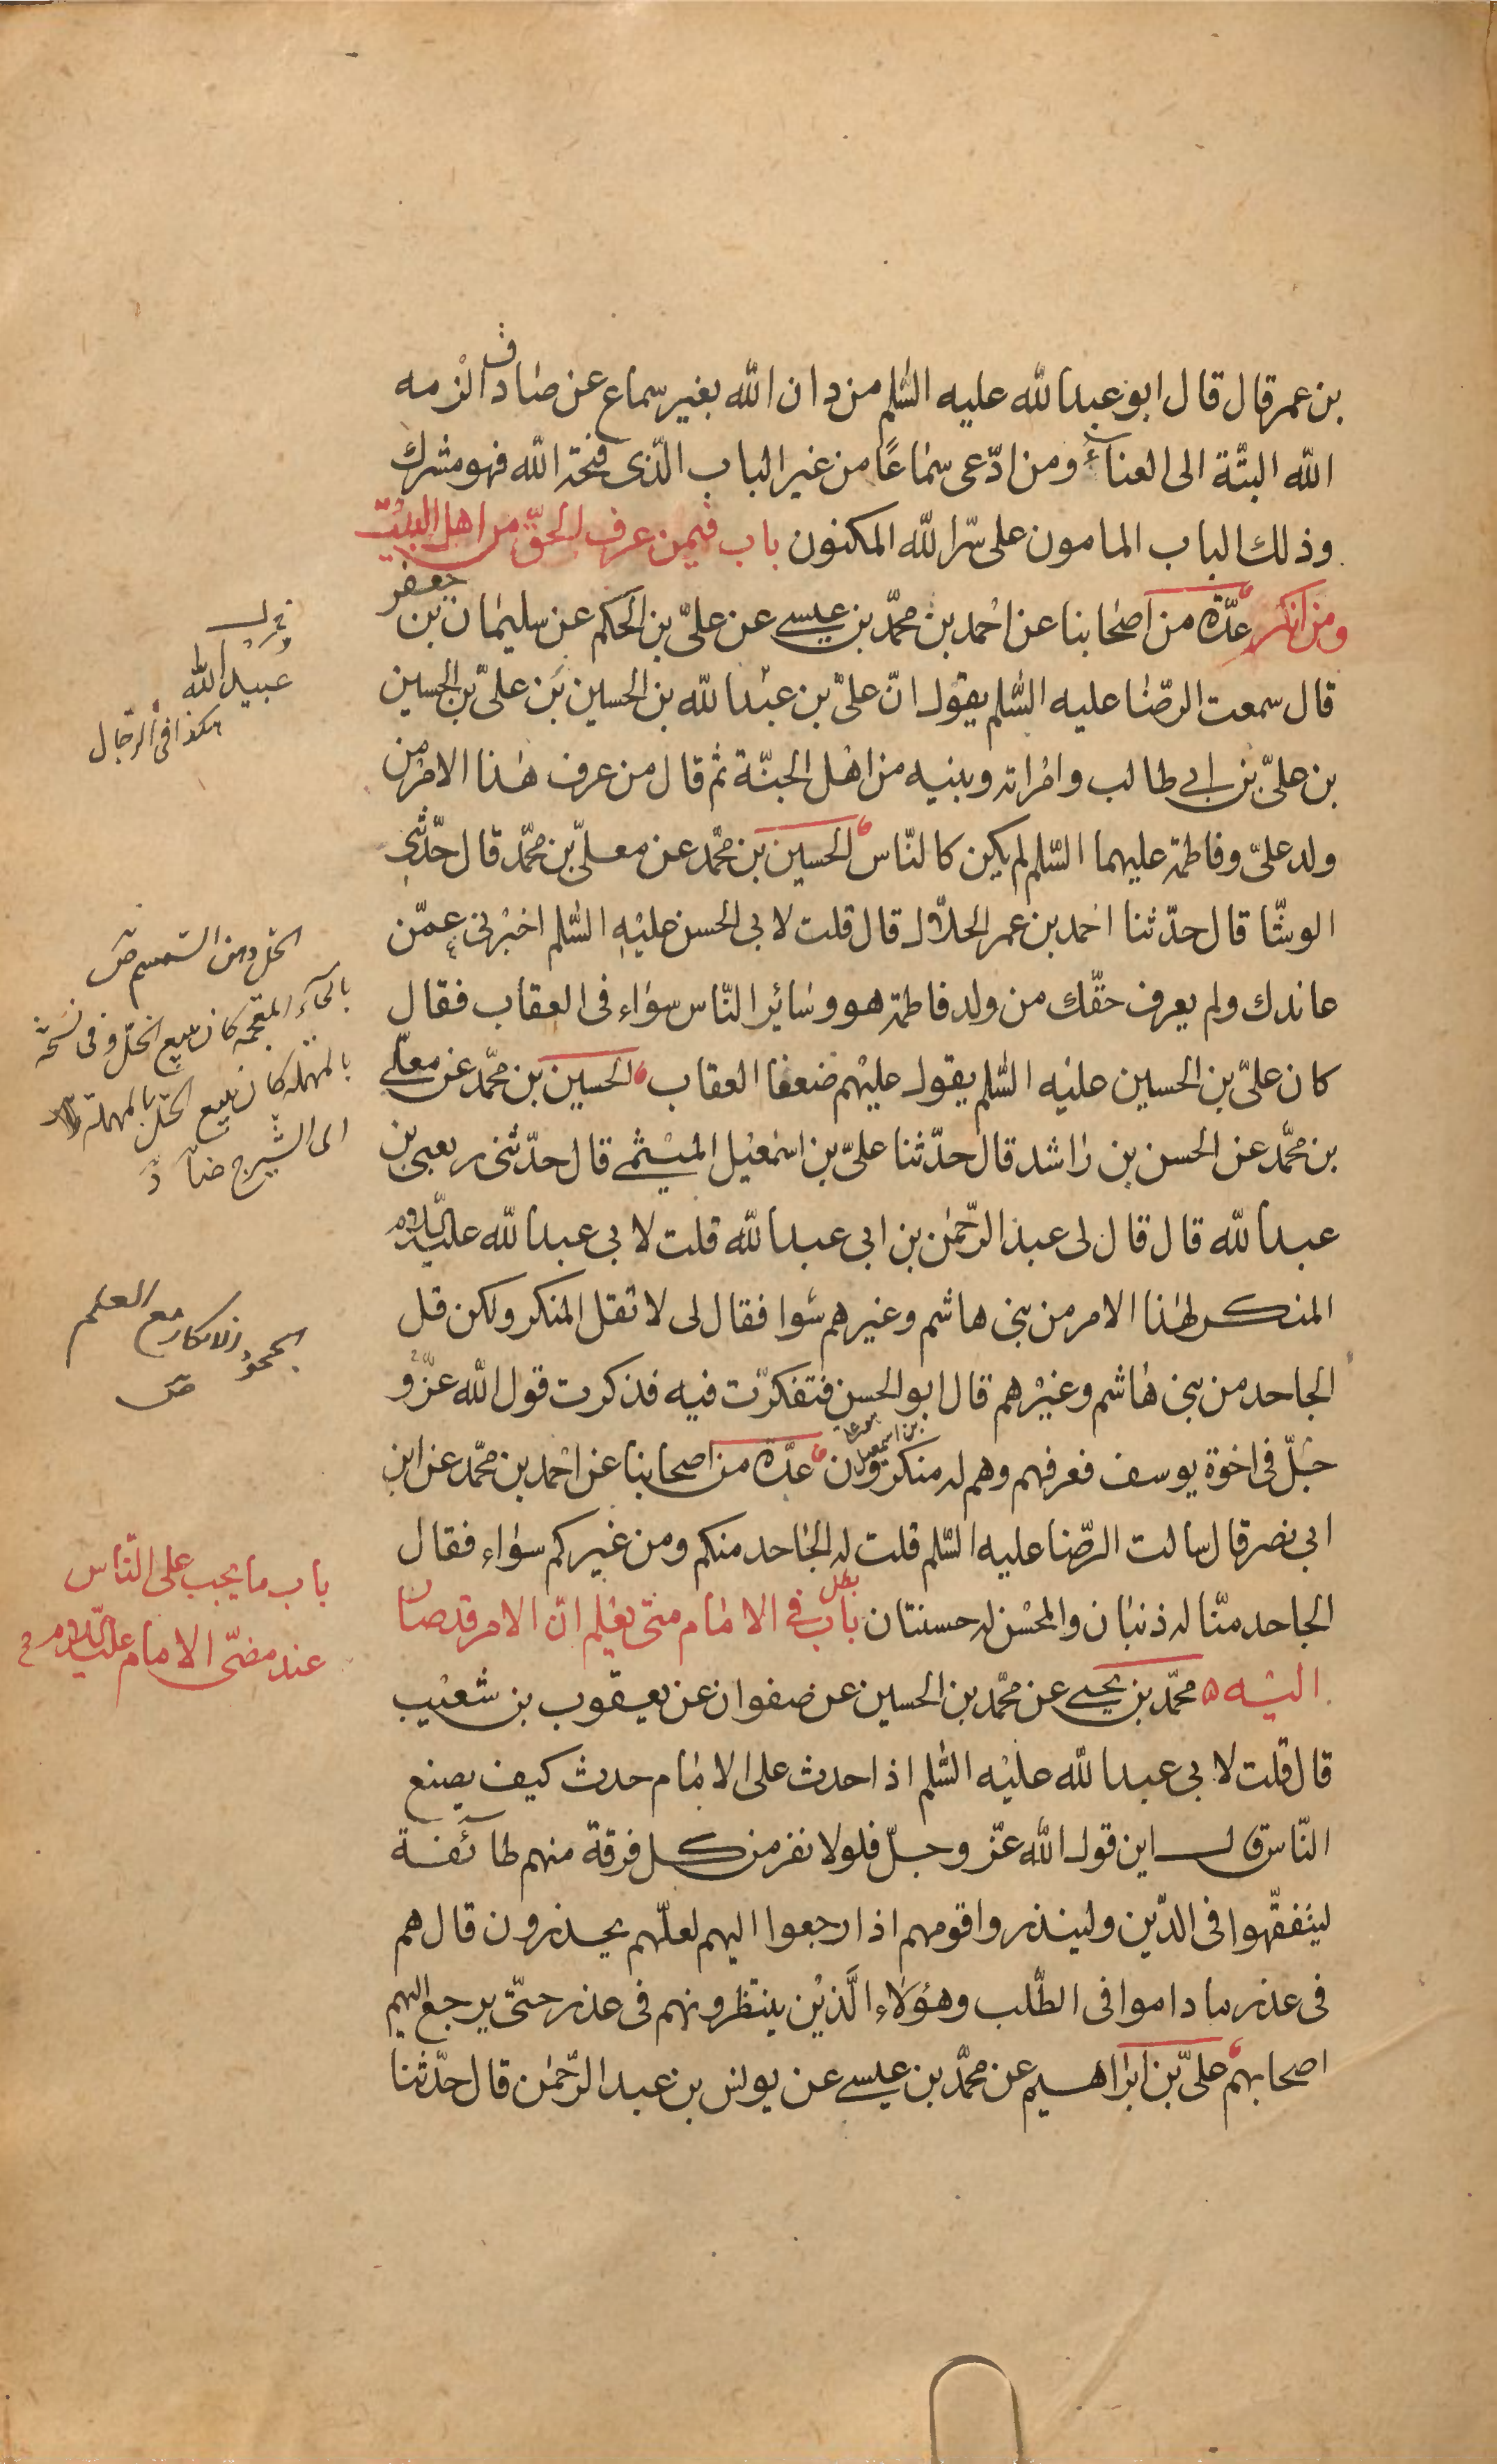 بن عمر قال قال ابو عبدالله عليه السّلم من دان الله بغير سماع عن صادق الزمه
الله البتّة الى العناء ومن ادّعى سماعًا من غير الباب الّذى فتحة الله فهو مشرك
وذلك الباب المامون على سّر الله المكنون باب فيمن عرف الحقّ من اهل البيت
ومن انكر عدّة من اصحابنا عن احمد بن محمّد بن عيسى عن علىّ بن الحكم عن سليمان بن جعفر
قال سمعت الرّضا عليه السّلم يقول انّ علىّ بن عبدالله بن الحسين بن علىّ بن الحسين
بن علىّ بن ابى طالب وامراته وبنيه من اهل الجنّة ثم قال من عرف هذا الامر من
ولد علىّ وفاطمة عليهما السّلم لم يكن كالنّاس الحسين بن محمّد عن معلّى بن محمّد قال حدّثنى
الوشّا قال حدّثنا احمد بن عمر الحلّال قال قلت لابى الحسن عليه السّلم اخبرنى عمّن
عاندك ولم يعرف حقّك من ولد فاطمة هو وسائر النّاس سواء فى العقاب فقال
كان علىّ بن الحسين عليه السّلم يقول عليهم ضعفا العقاب الحسين بن محمّد عن معلّى
بن محمّد عن الحسن بن راشد قال حدّثنا علىّ بن اسمعيل الميثمى قال حدّثنى ربعى بن
عبدالله قال قال لى عبد الرّحمن بن ابى عبدالله قلت لابى عبدالله عليه السّلام
المنكر لهذا الامر من بنى هاشم وغيرهم سوا فقال لى لا تقل المنكر ولكن قل
الجاحد من بنى هاشم وغيرهم قال ابو الحسن فتفكرّت فيه فذكرت قول الله عزّ و
بن اسمعيل
جلّ فى اخوة يوسف فعرفهم وهم له منكرون عدّة من اصحابنا عن احمد بن محمّد عن ابن
ابى نصر قال سالت الرّضا عليه السّلم قلت له الجاحد منكم ومن غيركم سواء فقال
الجاحد منّا له ذنبان والمحسن له حسنتان باب فى الامام متى يعلم انّ الامر قد صار
اليه محمّد بن يحيى عن محمّد بن الحسين عن صفوان عن يعقوب بن شعيب
قال قلت لابى عبدالله عليه السّلم اذا حدث على الامام حدث كيف يصنع
النّاس قال اين قول الله عزّ وجلّ فلولا نفر من كل فرقة منهم طائفة
ليتفقّهوا فى الدّين ولينذروا قومهم اذا رجعوا اليهم لعلّهم يحذرون قال هم
فى عذر ما داموا فى الطّلب وهؤلاء الّذين ينتظرونهم فى عذر حتّى يرجع اليهم
اصحابهم علىّ بن ابراهيم عن محمّد بن عيسى عن يونس بن عبد الرّحمن قال حدّثنا
عبيد الله
هكذا فى الرجال
الحل دهن السمسم
بالخآء المعجمة كان يبيع الخلّ وفى نسخة
بالمهملة كان يبيع الحلّ بالمهملة
اى الشيرج
الجحود الانكار مع العلم
باب ما يجب على النّاس
عند مضىّ الامام عليه السّلام